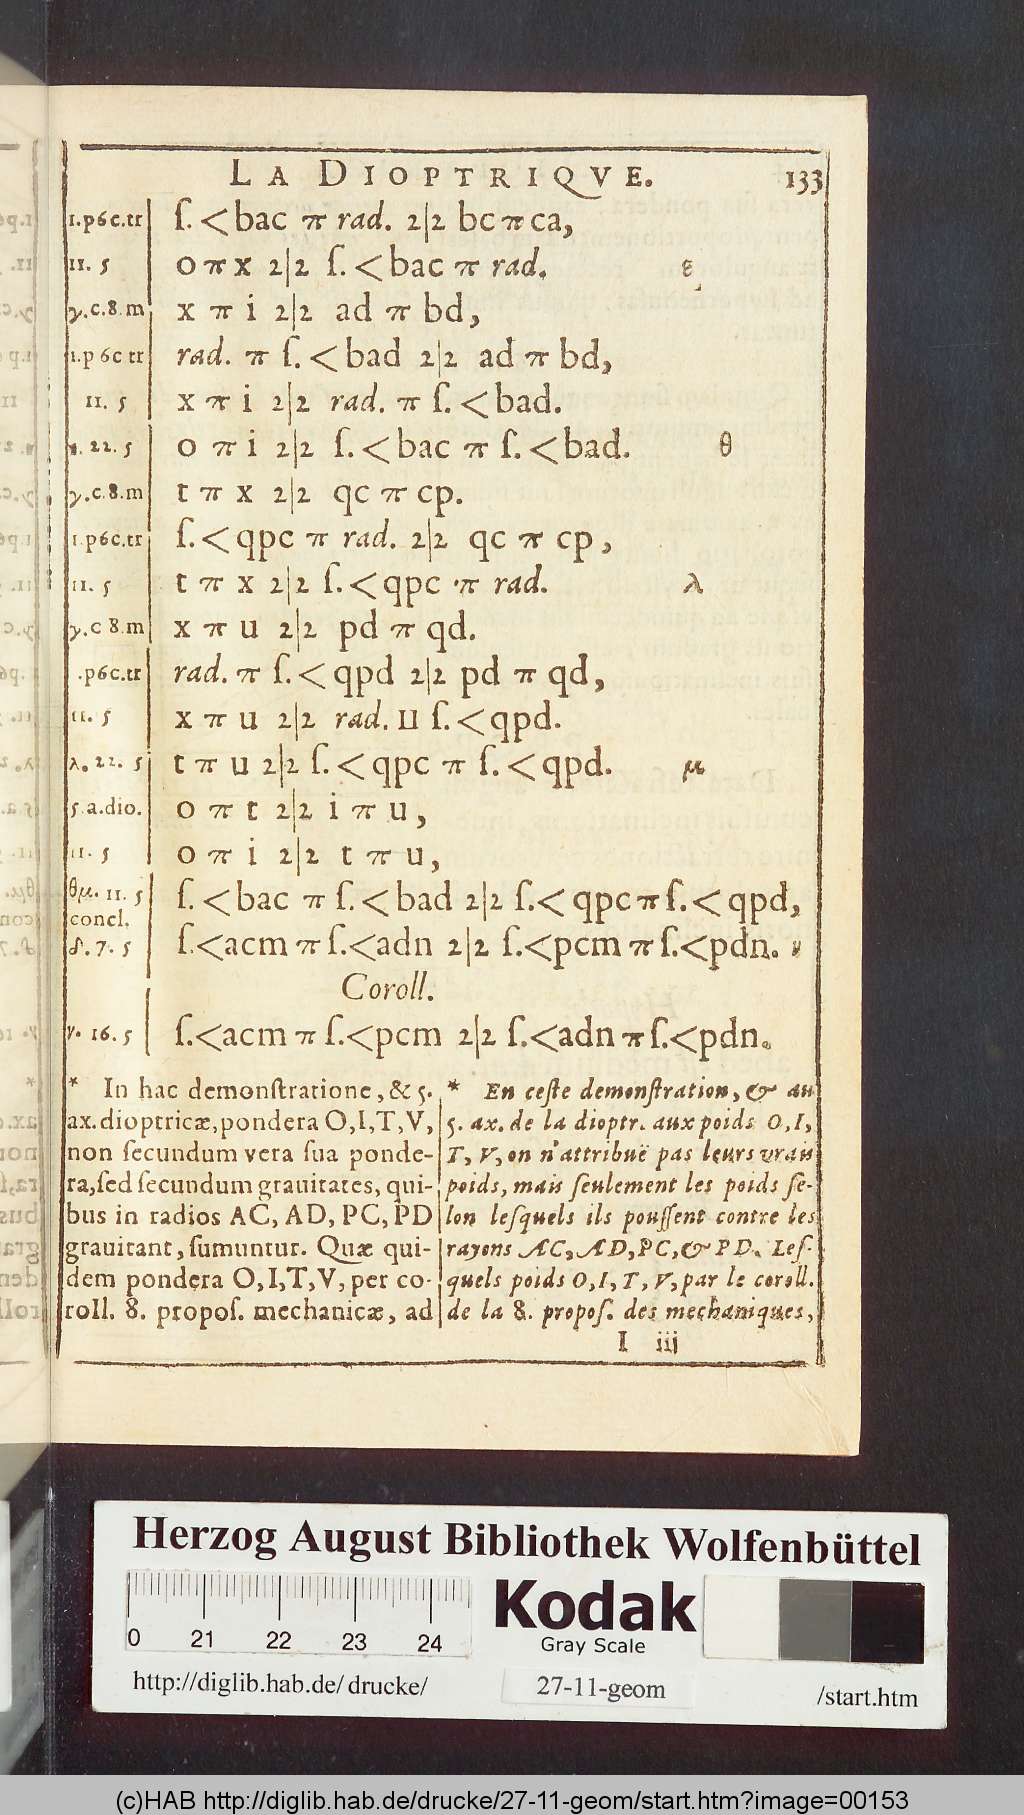 LA DIOPTRIQVE. 133
1.p6c.tr ſ.<bac π rad. 2|2 bc π ca,
11. 5 o π x 2|2 ſ.<bac π rad. ε
γ.c.8.m x π i 2|2 ad π bd,
1.p 6c tr rad. π ſ.<bad 2|2 ad π bd,
11. 5 x π i 2|2 rad. π ſ.<bad.
22. 5 o π i 2|2 ſ.<bac π ſ.<bad. θ
γ.c.8.m t π x 2|2 qc π cp.
1.p6c.tr ſ.<qpc π rad. 2|2 qc π cp,
11. 5 t π x 2|2 ſ.<qpc π rad. λ
γ.c 8.m x π u 2|2 pd π qd.
.p6c.tr rad. π ſ.<qpd 2|2 pd π qd,
11. 5 x π u 2|2 rad. Π ſ.<qpd.
λ. 22. 5 t π u 2|2 ſ.<qpc π ſ.<qpd. μ
5.a.dio. o π t 2|2 i π u,
11. 5 o π i 2|2 t π u,
θμ. 11. 5 ſ.<bac π ſ.<bad 2|2 ſ.<qpc π ſ.<qpd,
concl.
δ. 7. 5 ſ.<acm π ſ.<adn 2|2 ſ.<pcm π ſ.<pdn.
Coroll.
γ. 16. 5 ſ.<acm π ſ.<pcm 2|2 ſ.<adn π ſ.<pdn.
* In hac demonſtratione, & 5.
ax. dioptricæ, pondera O,I,T,V,
non ſecundum vera ſua ponde-
ra, ſed ſecundum grauitates, qui-
bus in radios AC, AD, PC, PD
grauitant, ſumuntur. Quæ qui-
dem pondera O,I,T,V, per co-
roll. 8. propoſ. mechanicæ, ad
* En ceſte demonſtration, & au
5. ax. de la dioptr. aux poids O,I,
T, V, on n'attribuë pas leurs vrais
poids, mais ſeulement les poids ſe-
lon leſquels ils pouſſent contre les
rayons AC, AD, PC, & PD. Leſ-
quels poids O, I, T, V, par le coroll.
de la 8. propoſ. des mechaniques,
I iij
Herzog August Bibliothek Wolfenbüttel
0 21 22 23 24
Kodak
Gray Scale
http://diglib.hab.de/ drucke/ 27-11-geom /start.htm
(c)HAB http://diglib.hab.de/drucke/27-11-geom/start.htm?image=00153